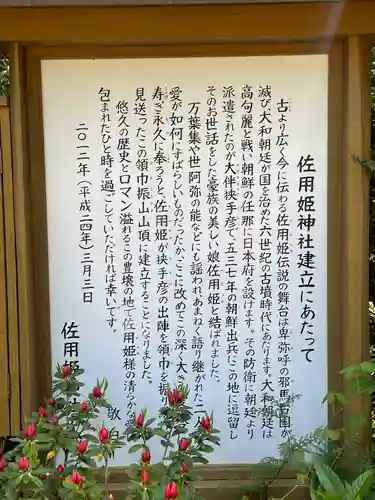 佐用姫神社建立にあたって
古より広く今に伝わる佐用姫伝説の舞台は卑弥呼の邪馬台国が
滅び、大和朝廷が国を治めた六世紀の古墳時代にあたります。大和朝廷は
高句麗と戦い朝鮮の任那に日本府を設けます。その防衛に朝廷より
派遣されたのが大伴挟手彦で、五三七年の朝鮮出兵にこの地に逗留し
そのお世話をした豪族の美しい娘佐用姫と結ばれました。
万葉集や世阿弥の能などにも謡われあまねく語り継がれた二人
愛が如何にすばらしいものだったか、ここに改めてこの深く大き
寿ぎ永久に奉ろうと、佐用姫が挟手彦の出陣を領巾を
見送ったこの領巾振山山頂に建立することになりました。
悠久の歴史とロマン溢れるこの豊壌の地で佐用姫様の清らかな
包まれたひと時を過ごしていただければ幸いです。
敬白
二〇一二年(平成二四年)三月三日
佐用姫